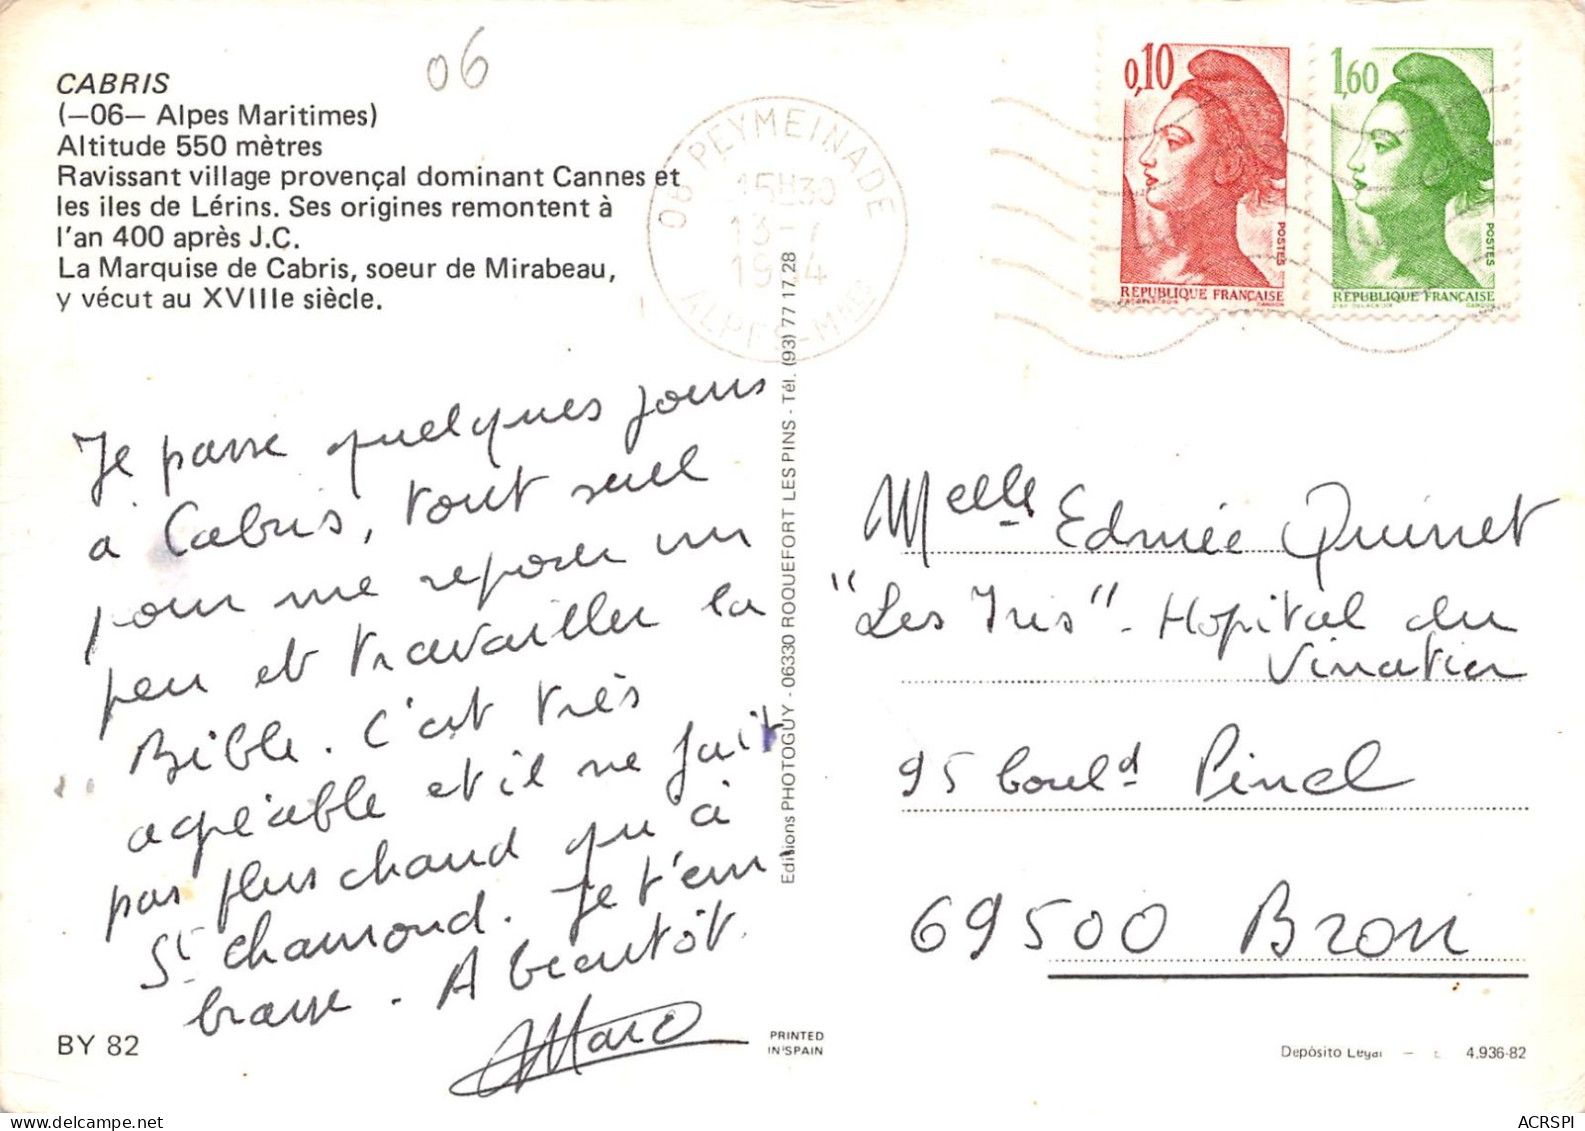 06
CABRIS
(—06— Alpes Maritimes)
Altitude 550 mètres
Ravissant village provençal dominant Cannes et
les iles de Lérins. Ses origines remontent à
l'an 400 après J.C.
La Marquise de Cabris, soeur de Mirabeau,
y vécut au XVIIIe siècle.
06 PEYMEINADE
15H30
13-7
1984
ALPES-Mmes
0,10
POSTES
REPUBLIQUE FRANÇAISE
1,60
POSTES
REPUBLIQUE FRANÇAISE
Je passe quelques jours
à Cabris, tout seul
pour me reposer un
peu et travailler la
Bible. C'est très
agréable et il ne fait
pas plus chaud qu'à
St Chamond. Je t'em
brasse. A bientôt.
Marc
Editions PHOTOGUY - 06330 ROQUEFORT LES PINS - Tél. (93) 77 17 28
Melle Edmée Quinet
"Les Iris" - Hopital du
Vinatier
95 bould Pinel
69500 Bron
BY 82
PRINTED
IN SPAIN
Depósito Legal — 4.936-82
ACRSPI